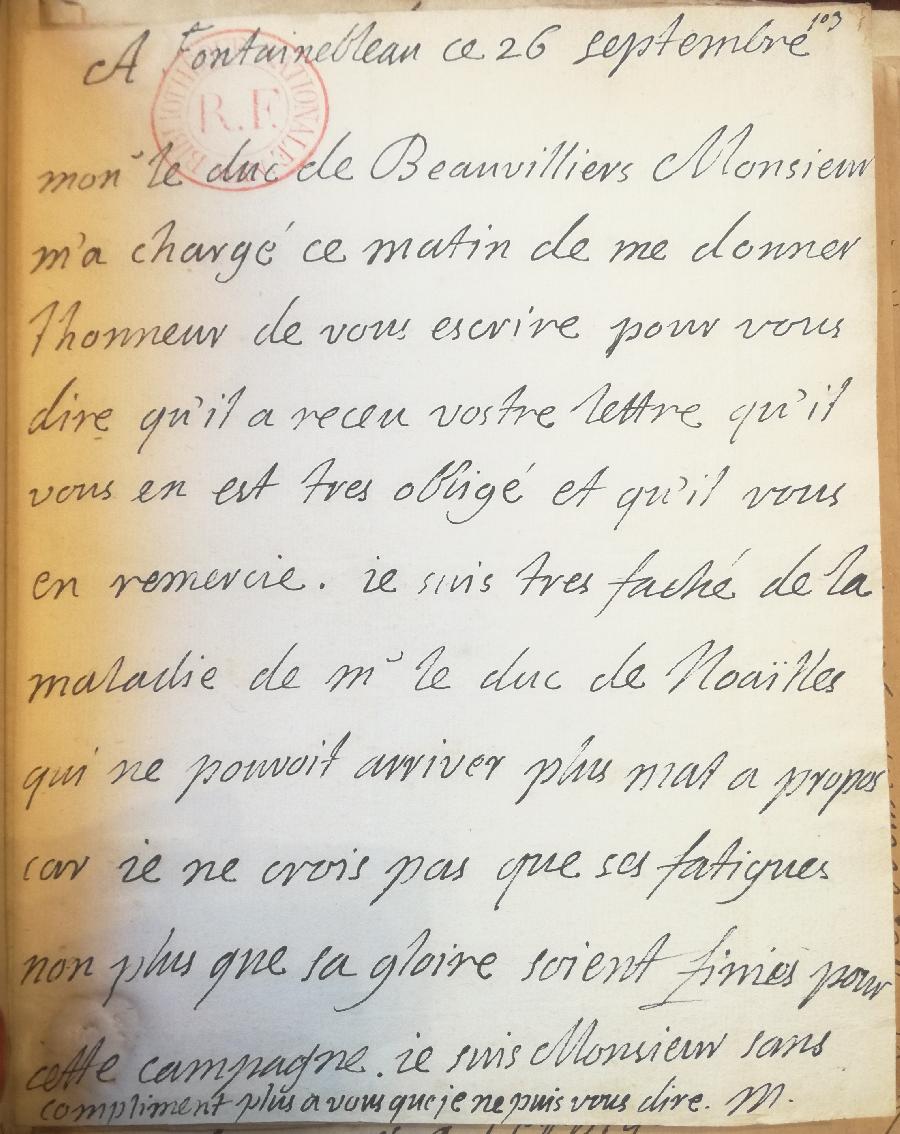 103
A Fontainebleau ce 26 septembre
BIBLIOTHEQUE NATIONALE
R.F.
monr le duc de Beauvilliers Monsieur
m'a chargé ce matin de me donner
lhonneur de vous escrire pour vous
dire qu'il a receu vostre lettre qu'il
vous en est tres obligé et qu'il vous
en remercie. ie suis tres faché de la
maladie de mr le duc de Noaïlles
qui ne pouvoit arriver plus mal a propos
car ie ne crois pas que ses fatigues
non plus que sa gloire soient finies pour
cette campagne. ie suis Monsieur sans
compliment plus a vous que je ne puis vous dire. M.